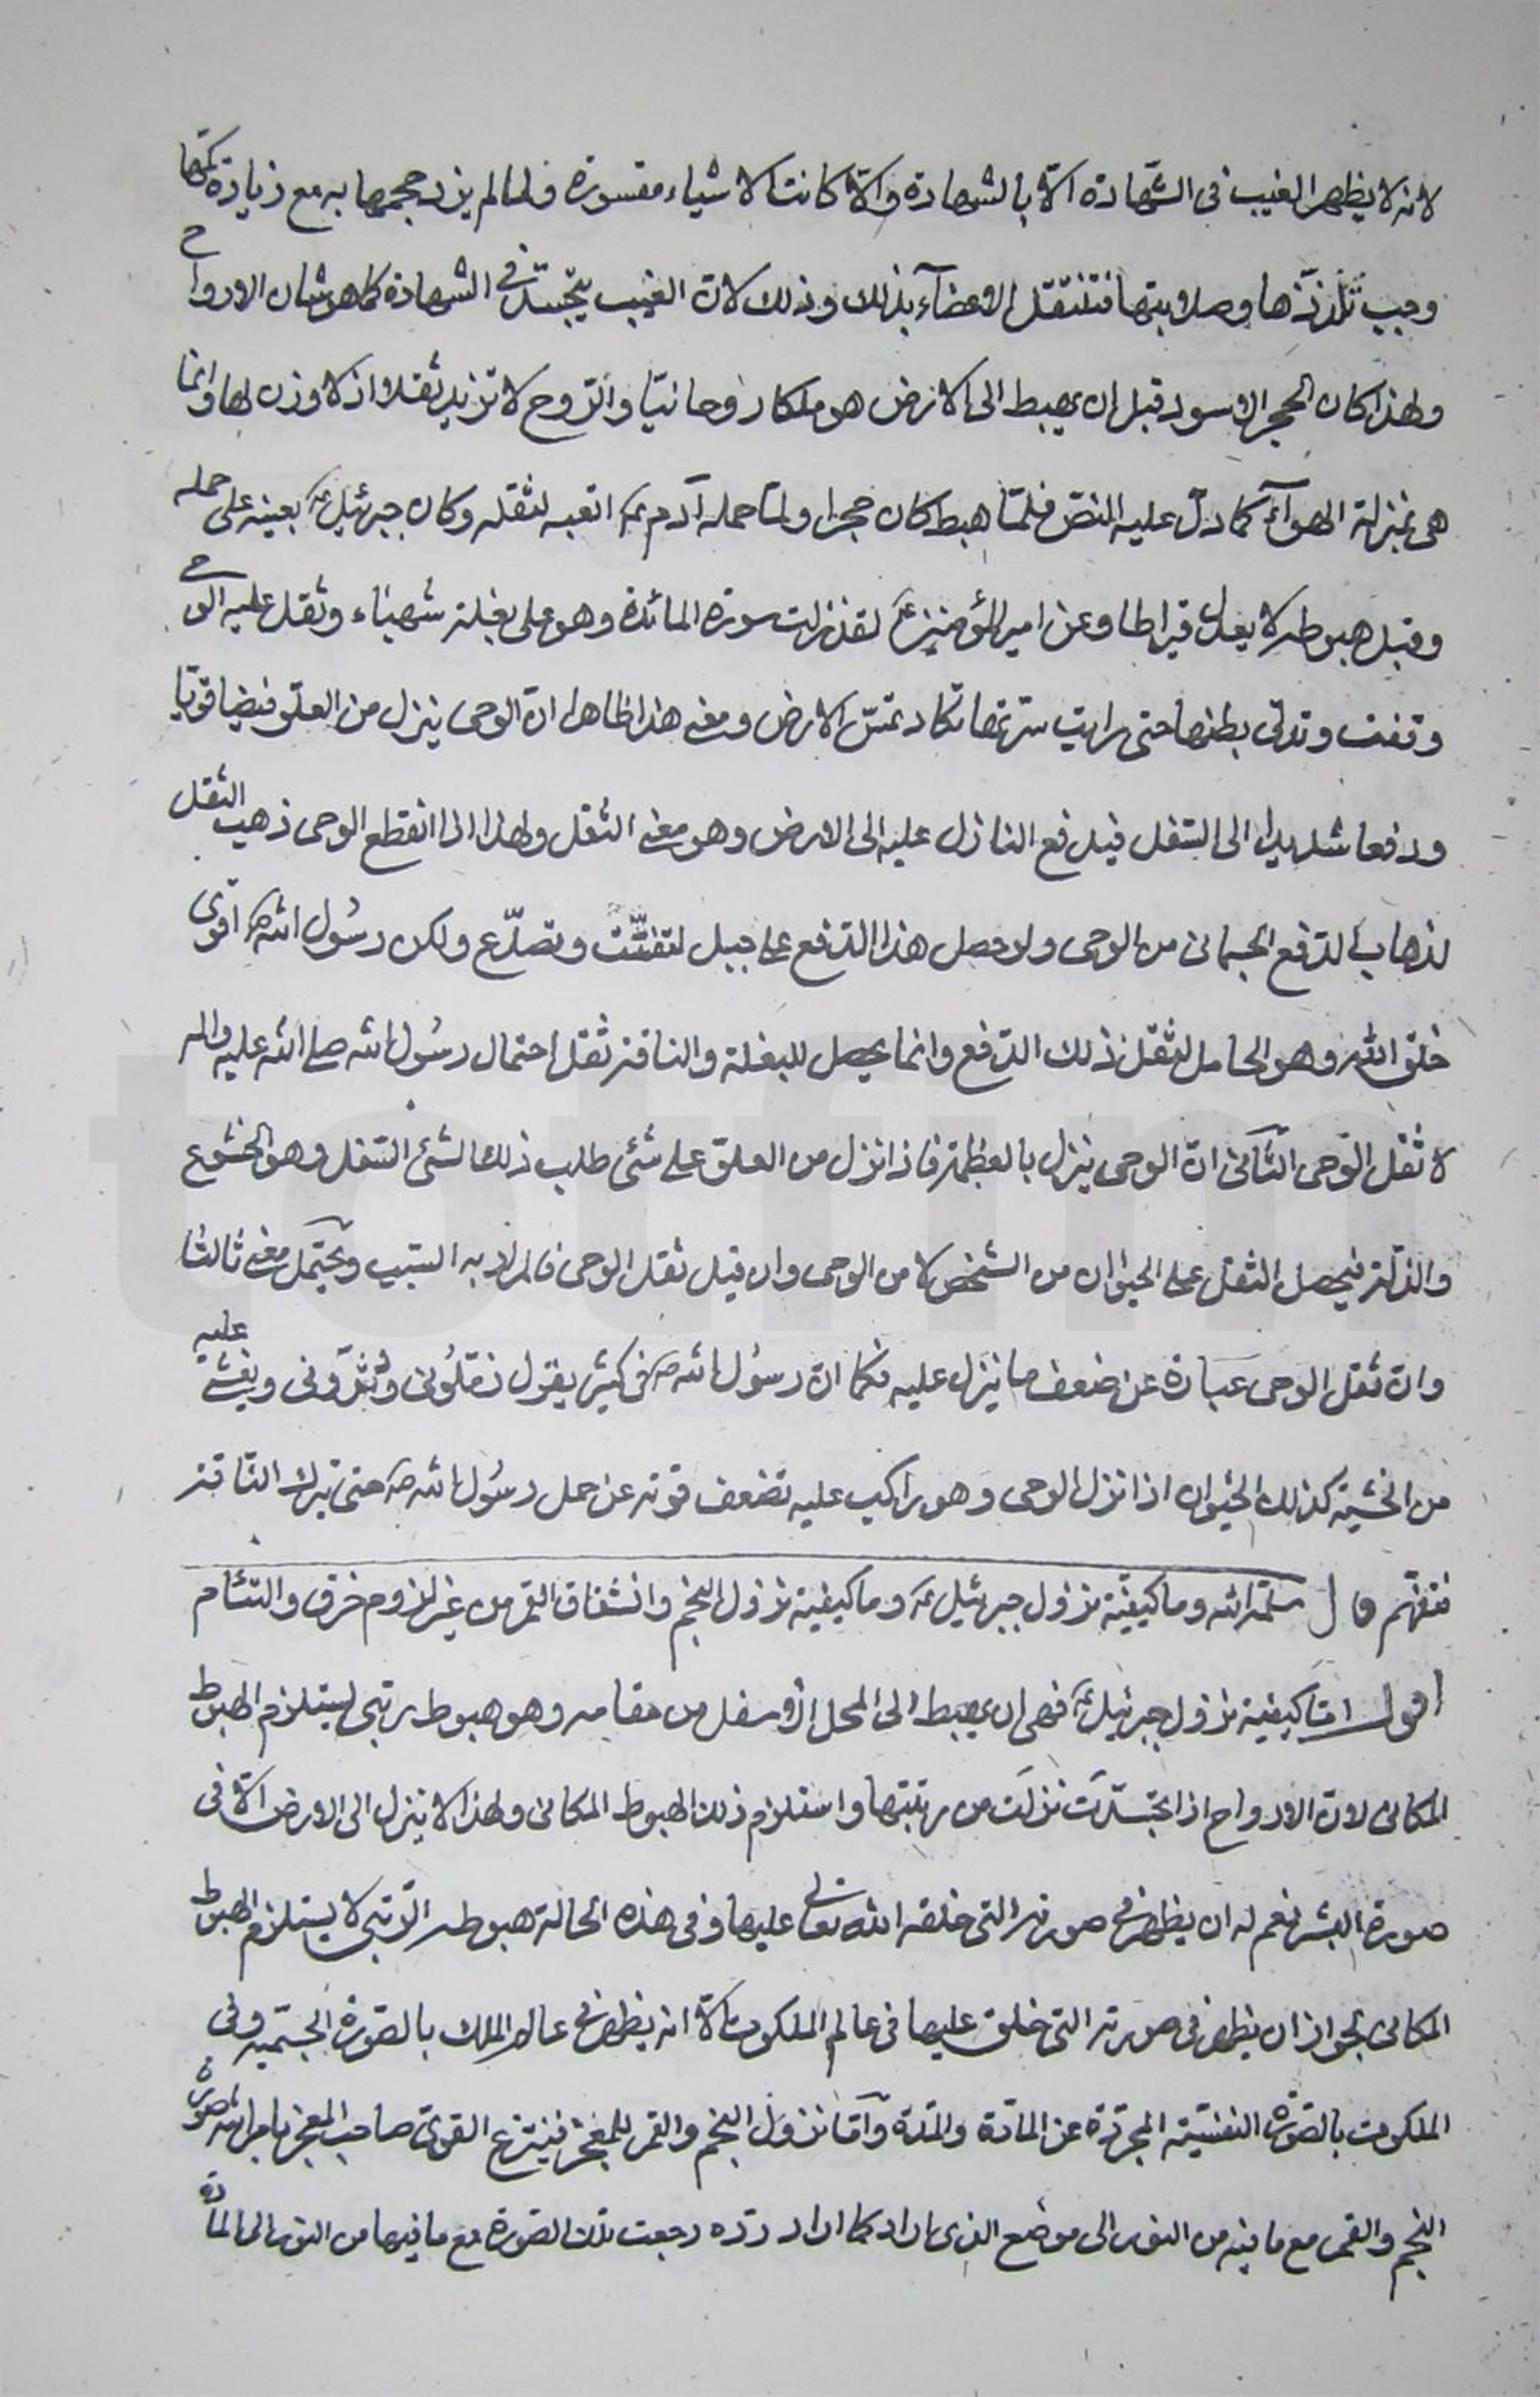 لانه لا يظهر الغيب فى الشهادة الّا بالشهادة والّا كانت الاشياء مقسورة فلما لم يزد حجمها به مع زيادة كمّها
وجب تلذّذها وصلابتها فتنتقل الاعضآء بذلك وذلك لانّ الغيب يتجسّد فى الشهادة كما هو شان الارواح
ولهذا كان الحجر الاسود قبل ان يهبط الى الارض هو ملكا روحانيّا والرّوح لا تزيد ثقلا اذ لا وزن لها وانما
هى بمنزلة الهوآء كما دلّ عليه النصّ فلمّا هبط كان حجرا ولمّا حمله آدم ع اتعبه لثقله وكان جبرئيل ع يعينه على حمله
وقبل هبوطه لا يعدل قيراطا وعن امير المؤمنين ع لقد نزلت سورة المائدة وهو على بغلة شهباء وثقل عليه الوحى
وقفت وتدلى بطنها حتى رايت سرتها تكاد تمسّ الارض ومعنى هذا ظاهرا انّ الوحى ينزل من العلو فيضا قويّا
ودفعا شديدا الى السّفل فيدفع النازل عليه الى الارض وهو معنى الثقل ولهذا اذا انقطع الوحى ذهب الثقل
لذهاب الدّفع الجسمانى من الوحى ولو حصل هذا الدّفع على جبل لتفتّت وتصدّع ولكن رسُول اللّه ص اقوى
خلق اللّه وهو الحامل لثقل ذلك الدّفع وانما يحصل للبغلة والناقة ثقل احتمال رسُول اللّه صلى اللّه عليه واله
لا ثقل الوحى الثّانى انّ الوحى ينزل بالعظمة فاذا نزل من العلوّ على شئ طلب ذلك الشئ السّفل وهو الخشوع
والذلّة فيحصل الثقل على الحيوان من الشخص لا من الوحى وان قيل ثقل الوحى فالمراد به السّبب ويحتمل معنى ثالثا
وانّ ثقل الوحى عبارة عن ضعف ما ينزل عليه فكما انّ رسُول اللّه ص فى كثير يقول زمّلُونى ودثّرونى ويغشى عليه
من الخشية كذلك الحيوان اذا نزل الوحى وهو راكب عليه تضعف قوته عن حمل رسُول اللّه ص حتى تبرك النّاقة
فتفهّم قال سلّمه اللّه وما كيفيّة نزول جبرئيل ع وما كيفية نزول النجم وانشقاق القمر من غير لزوم خرق والتئام
اقول امّا كيفية نزول جبرئيل ع فهى ان يهبط الى المحل الاسفل من مقامه وهو هبوط رتبى يستلزم الهبوط
المكانى لانّ الارواح اذا تجسّدت نزلت من رتبتها واستلزم ذلك الهبوط المكانى ولهذا لا ينزل الى الارض الّا فى
صورة البشر نعم له ان يظهر فى صورته التى خلقه اللّه تعالى عليها وفى هذه الحالة هبوطه الرّتبى لا يستلزم الهبوط
المكانى لجواز ان يظهر فى صورته التى خلق عليها فى عالم الملكوت الّا انه يظهر فى عالم الملك بالصّورة الجسميّة وفى
الملكوت بالصّورة النفسيّة المجرّدة عن المادّة والمدّة وامّا نزول النجم والقمر للمعجز فينتزع القوىّ صاحب المعجز بامر اللّه صورة
النجم والقمر مع ما فيه من النور الى موضع الذى اراد كما اراد ردّه رجعت تلك الصّورة مع ما فيها من النور الى المادّة